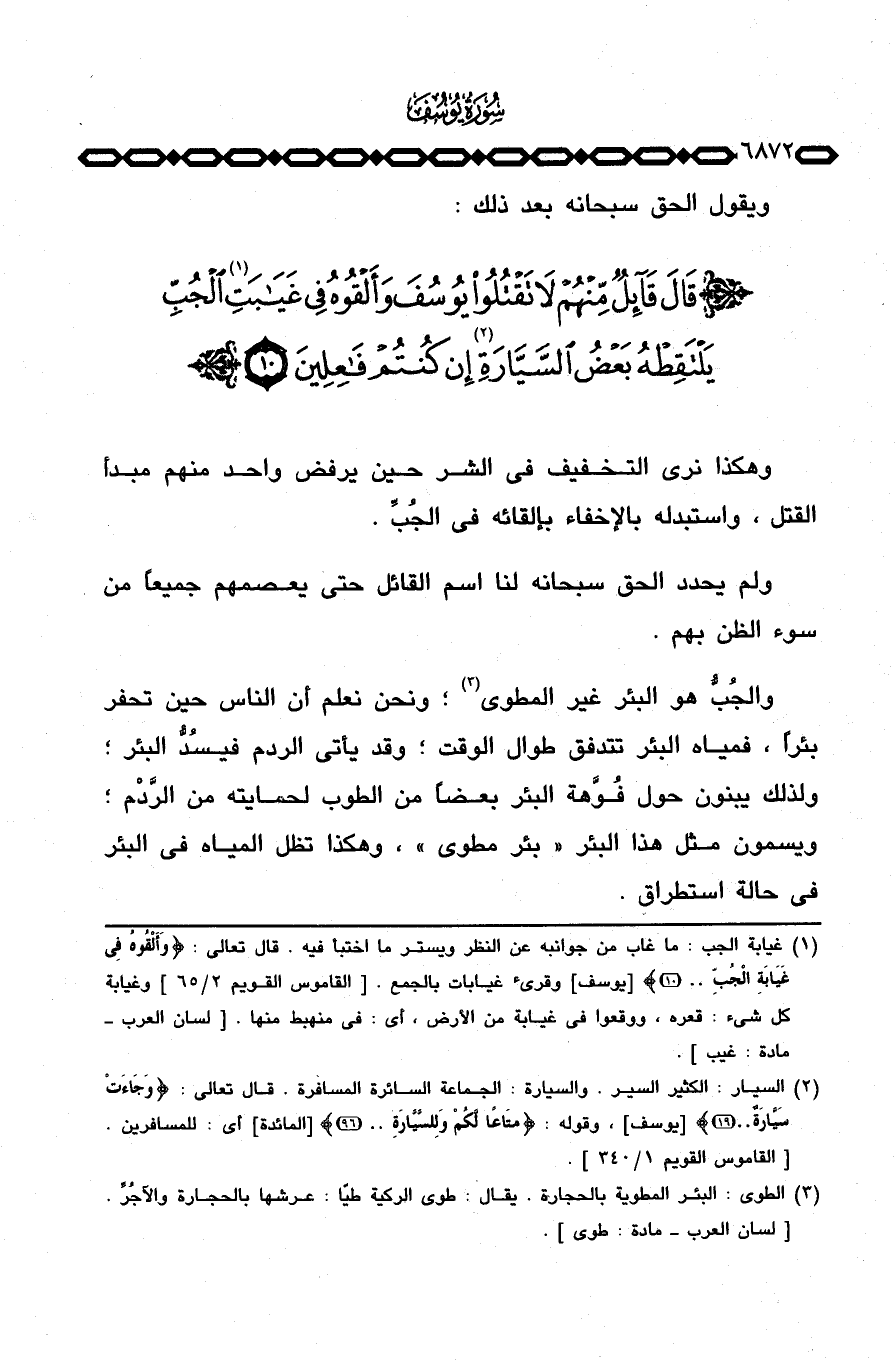 سُورَةُ يُوسُفَ
٦٨٧٢
ويقول الحق سبحانه بعد ذلك :
قَالَ قَآئِلٌ مِّنْهُمْ لَا تَقْتُلُوا۟ يُوسُفَ وَأَلْقُوهُ فِى غَيَـٰبَتِ (١) ٱلْجُبِّ
يَلْتَقِطْهُ بَعْضُ ٱلسَّيَّارَةِ (٢) إِن كُنتُمْ فَـٰعِلِينَ ١٠
وهكذا نرى التخفيف فى الشر حين يرفض واحد منهم مبدأ
القتل ، واستبدله بالإخفاء بإلقائه فى الجُبِّ .
ولم يحدد الحق سبحانه لنا اسم القائل حتى يعصمهم جميعاً من
سوء الظن بهم .
والجُبُّ هو البئر غير المطوى (٣) ؛ ونحن نعلم أن الناس حين تحفر
بئراً ، فمياه البئر تتدفق طوال الوقت ؛ وقد يأتى الردم فيسدُّ البئر ؛
ولذلك يبنون حول فُوَّهة البئر بعضاً من الطوب لحمايته من الرَّدْم ؛
ويسمون مثل هذا البئر « بئر مطوى » ، وهكذا تظل المياه فى البئر
فى حالة استطراق .
(١) غيابة الجب : ما غاب من جوانبه عن النظر ويستر ما اختبأ فيه . قال تعالى : ﴿وَأَلْقُوهُ فِى
غَيَابَةِ الْجُبِّ .. (١٠)﴾ [يوسف] وقرىء غيابات بالجمع . [ القاموس القويم ٦٥/٢ ] وغيابة
كل شىء : قعره ، ووقعوا فى غيابة من الأرض ، أى : فى منهبط منها . [ لسان العرب ـ
مادة : غيب ] .
(٢) السيار : الكثير السير . والسيارة : الجماعة السائرة المسافرة . قال تعالى : ﴿وَجَاءَتْ
سَيَّارَةٌ..(١٩)﴾ [يوسف] ، وقوله : ﴿مَتَاعًا لَّكُمْ وَلِلسَّيَّارَةِ .. (٩٦)﴾ [المائدة] أى : للمسافرين .
[ القاموس القويم ٣٤٠/١ ] .
(٣) الطوى : البئر المطوية بالحجارة . يقال : طوى الركية طيًا : عرشها بالحجارة والآجُرِّ .
[ لسان العرب ـ مادة : طوى ] .